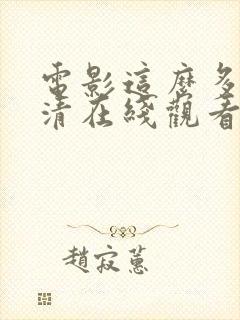 電影這麼多
清在綫觀看
趙寂蕙